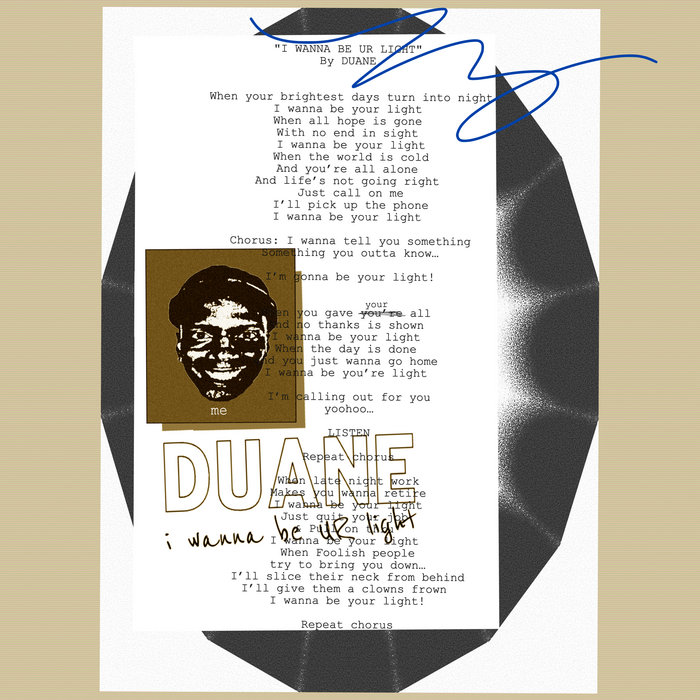 "I WANNA BE UR LIGHT"
By DUANE
When your brightest days turn into night
I wanna be your light
When all hope is gone
With no end in sight
I wanna be your light
When the world is cold
And you're all alone
And life's not going right
Just call on me
I'll pick up the phone
I wanna be your light
Chorus: I wanna tell you something
Something you outta know…
I'm gonna be your light!
your
you gave you're all
no thanks is shown
I wanna be your light
When the day is done
you just wanna go home
I wanna be you're light
I'm calling out for you
yoohoo…
me
LISTEN
DUANE
Repeat chorus
When late night work
Makes you wanna retire
I wanna be your light
Just quit your job
Pull on
i wanna be UR light
I wanna be your light
When Foolish people
try to bring you down…
I'll slice their neck from behind
I'll give them a clowns frown
I wanna be your light!
Repeat chorus